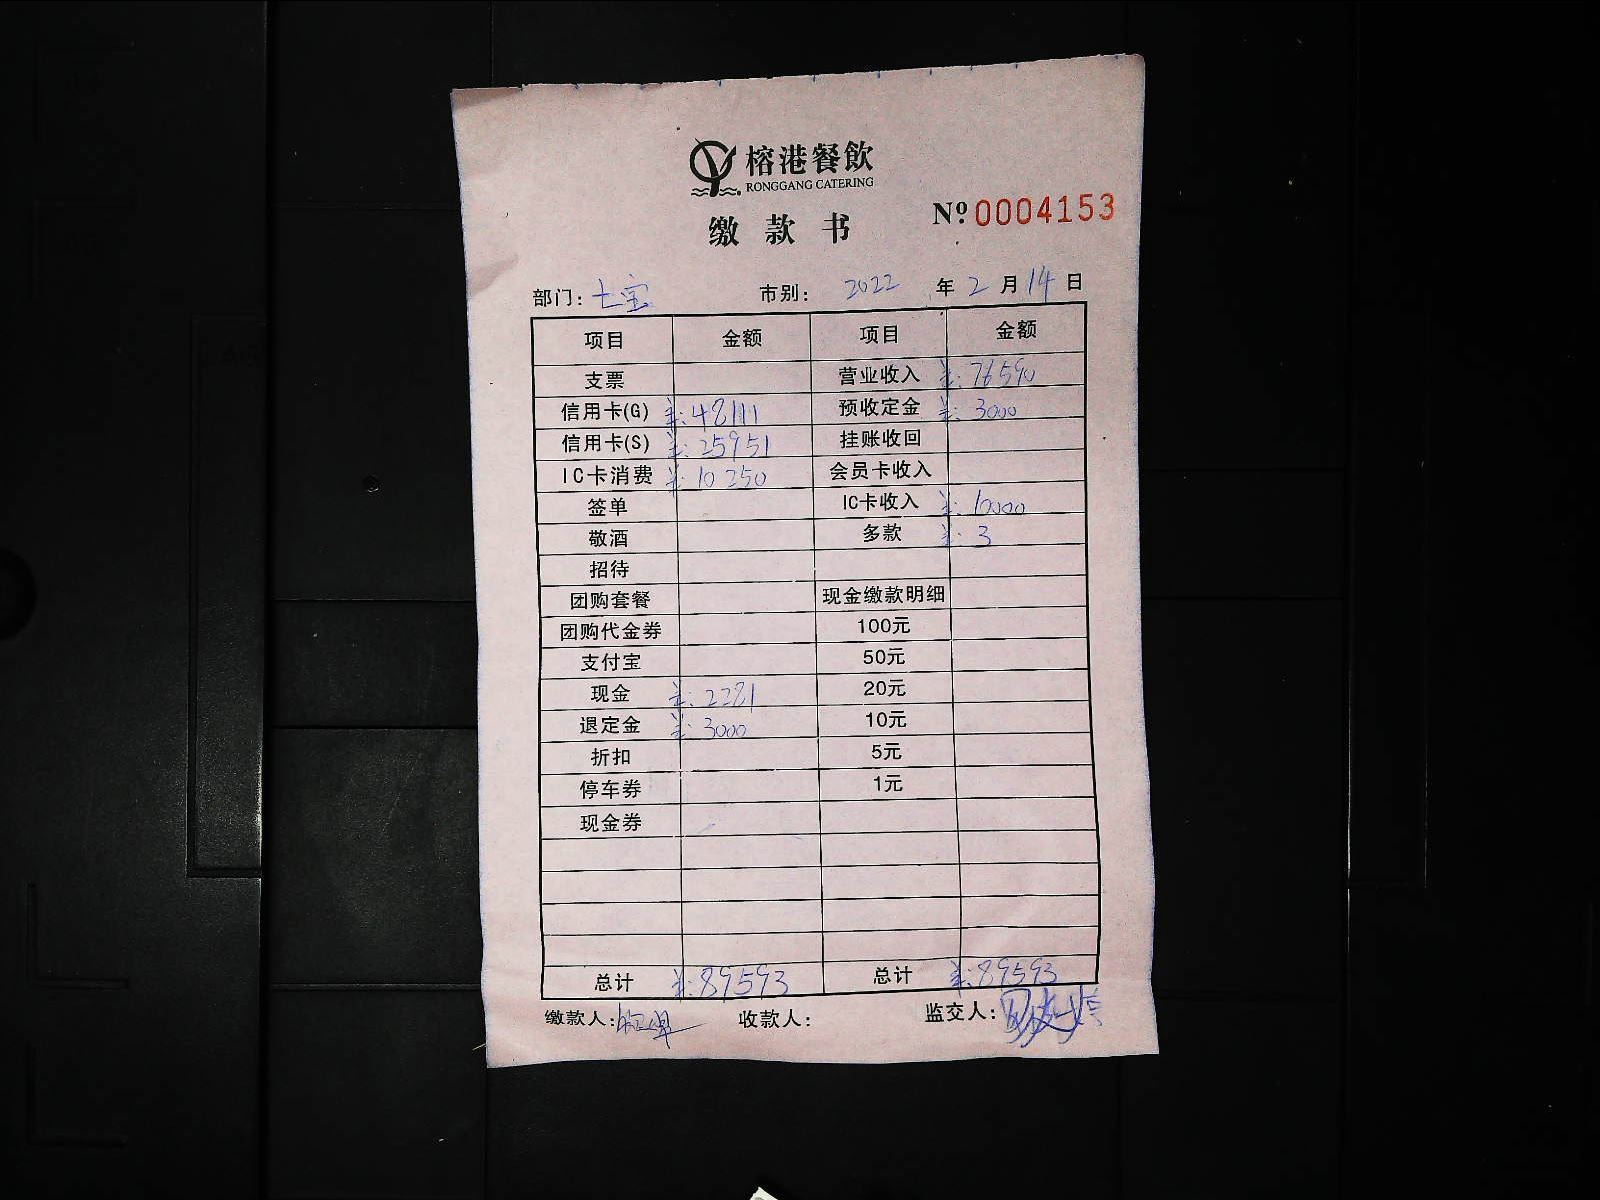 榕港餐飲
RONGGANG CATERING
缴款书 №.0004153
部门: 七宝 市别: 2022 年 2 月 14 日
项目 金额 项目 金额
支票 营业收入 ¥: 76590
信用卡(G) ¥: 48111 预收定金 ¥: 3000
信用卡(S) ¥: 25951 挂账收回
IC卡消费 ¥: 10250 会员卡收入
签单 IC卡收入 ¥: 10000
敬酒 多款 ¥: 3
招待
团购套餐 现金缴款明细
团购代金券 100元
支付宝 50元
现金 ¥: 2281 20元
退定金 ¥: 3000 10元
折扣 5元
停车券 1元
现金券
总计 ¥: 89593 总计 ¥: 89593
缴款人: 收款人: 监交人: